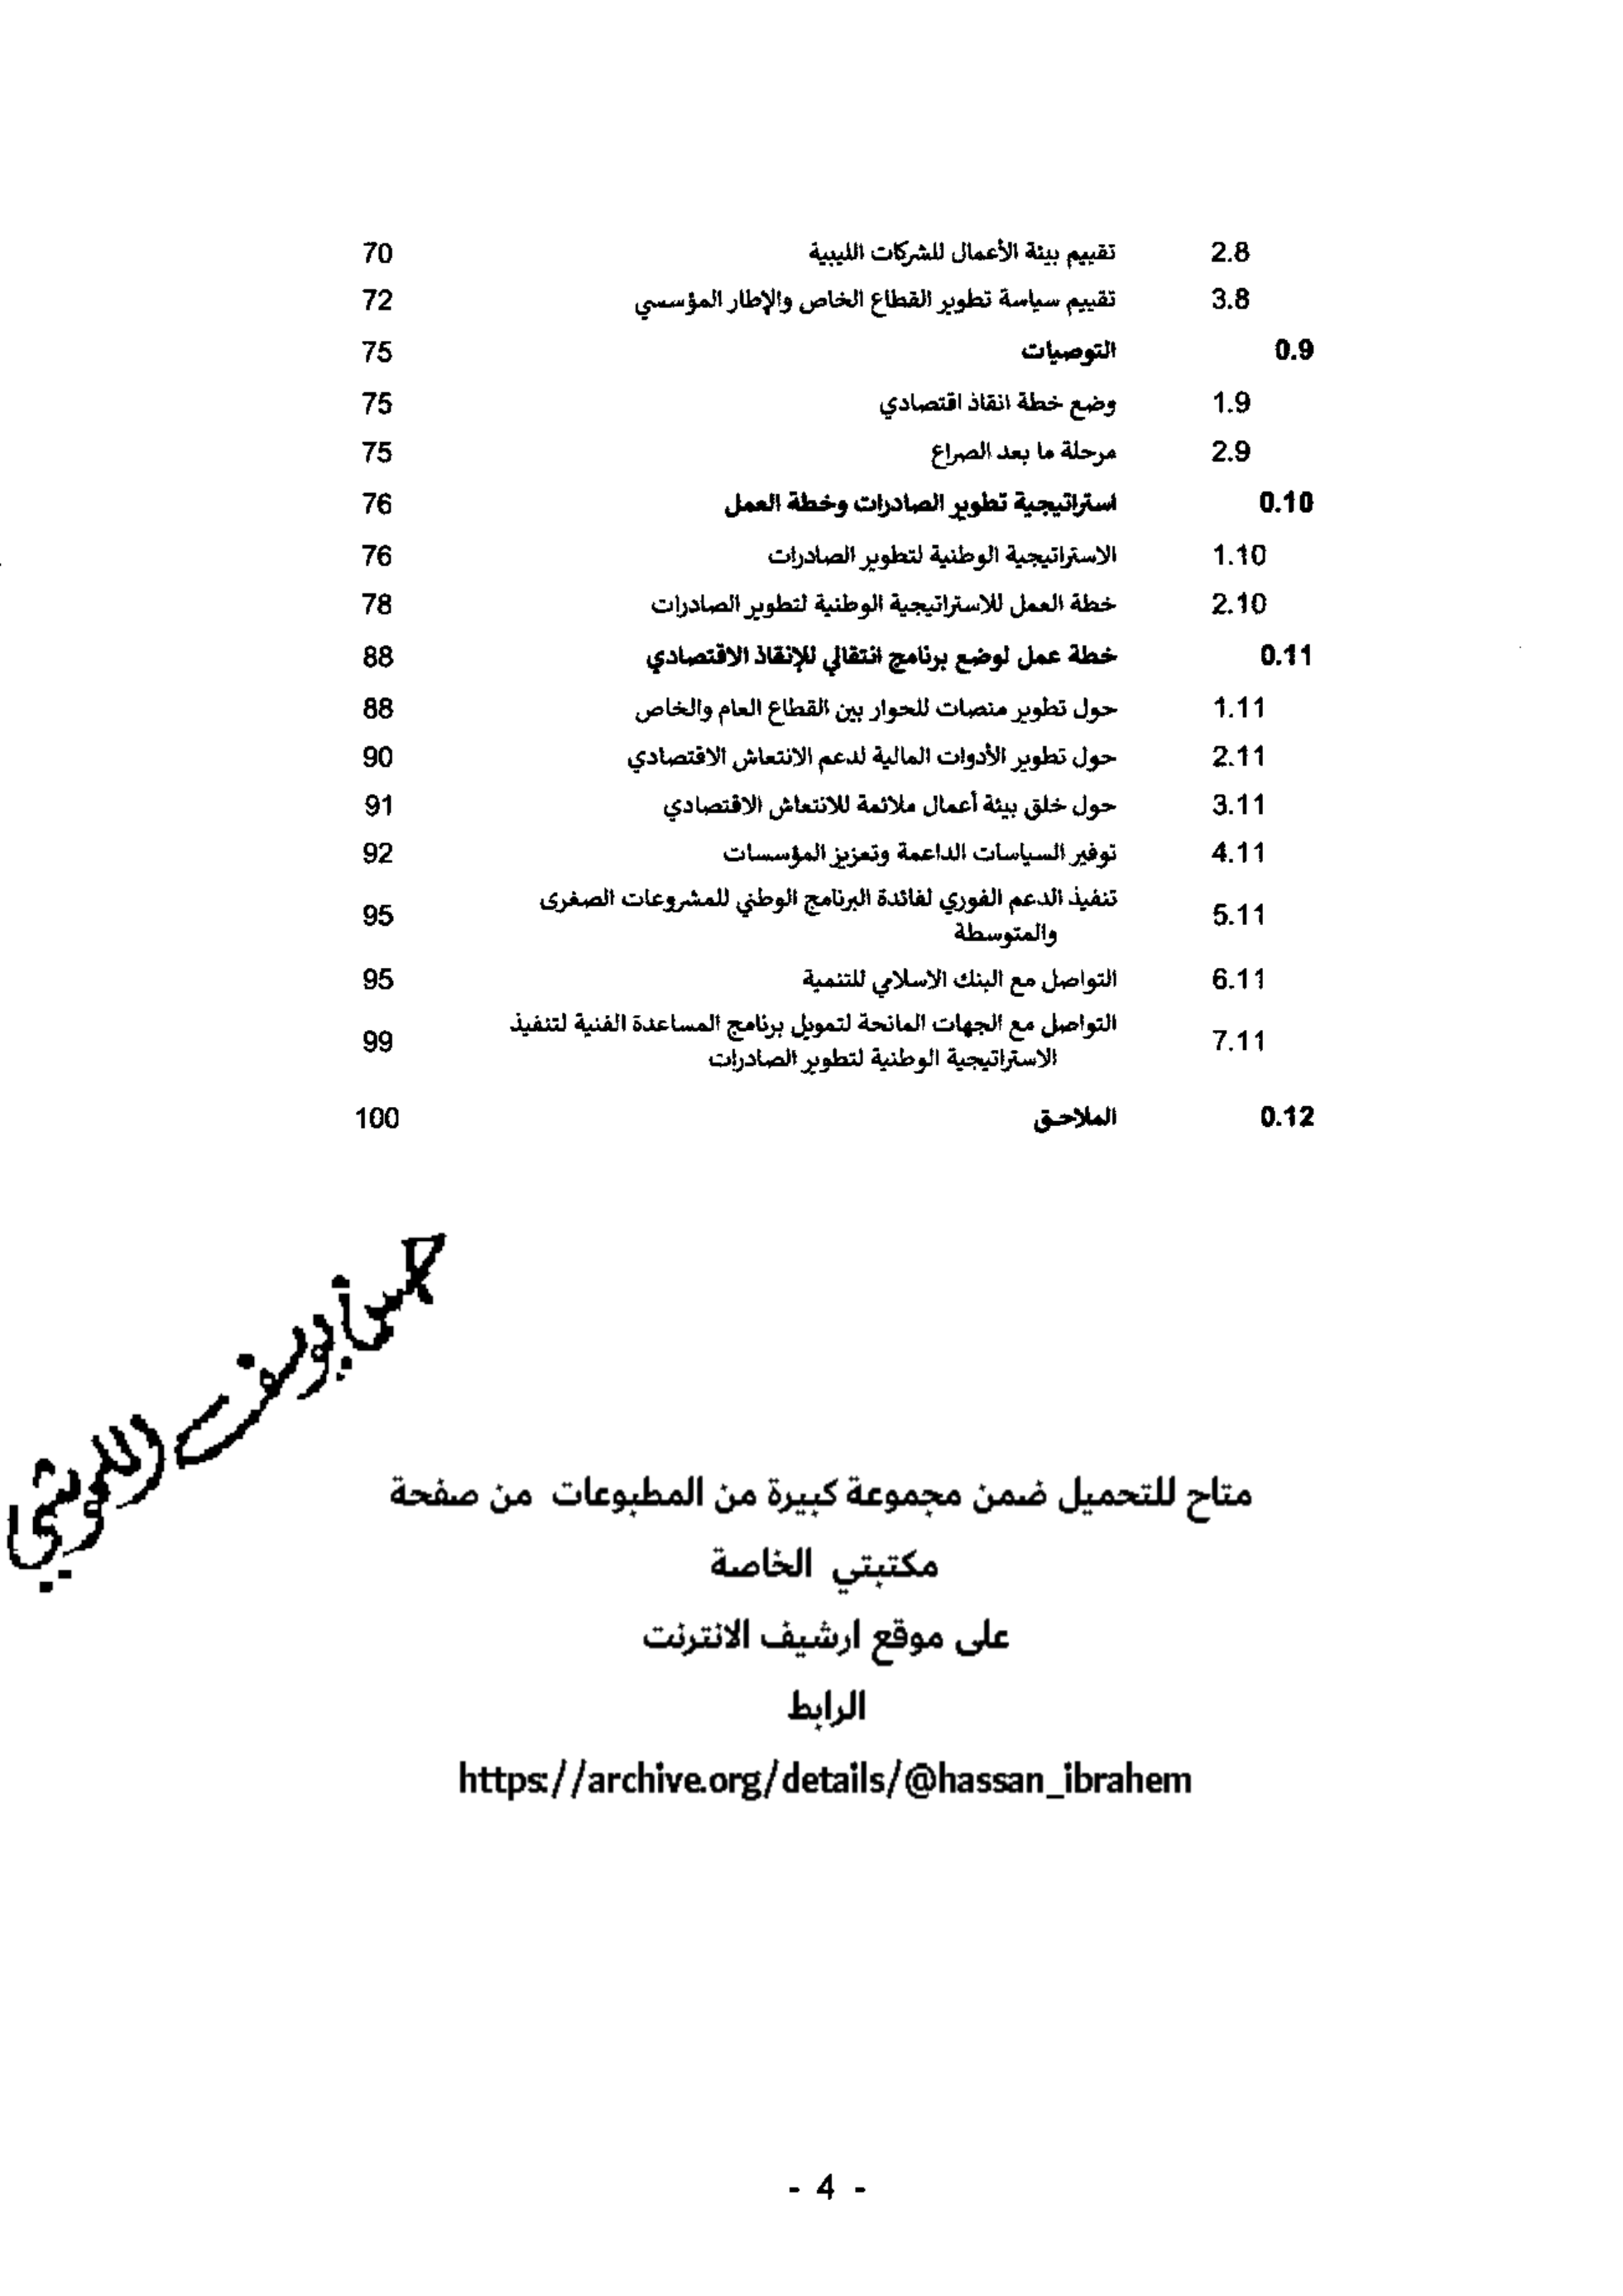 2.8 تقييم بيئة الأعمال للشركات الليبية 70
3.8 تقييم سياسة تطوير القطاع الخاص والإطار المؤسسي 72
0.9 التوصيات 75
1.9 وضع خطة انقاذ اقتصادي 75
2.9 مرحلة ما بعد الصراع 75
0.10 استراتيجية تطوير الصادرات وخطة العمل 76
1.10 الاستراتيجية الوطنية لتطوير الصادرات 76
2.10 خطة العمل للاستراتيجية الوطنية لتطوير الصادرات 78
0.11 خطة عمل لوضع برنامج انتقالي للإنقاذ الاقتصادي 88
1.11 حول تطوير منصات للحوار بين القطاع العام والخاص 88
2.11 حول تطوير الأدوات المالية لدعم الانتعاش الاقتصادي 90
3.11 حول خلق بيئة أعمال ملائمة للانتعاش الاقتصادي 91
4.11 توفير السياسات الداعمة وتعزيز المؤسسات 92
5.11 تنفيذ الدعم الفوري لفائدة البرنامج الوطني للمشروعات الصغرى 95
والمتوسطة
6.11 التواصل مع البنك الاسلامي للتنمية 95
7.11 التواصل مع الجهات المانحة لتمويل برنامج المساعدة الفنية لتنفيذ 99
الاستراتيجية الوطنية لتطوير الصادرات
0.12 الملاحق 100
متاح للتحميل ضمن مجموعة كبيرة من المطبوعات من صفحة
مكتبتي الخاصة
على موقع ارشيف الانترنت
الرابط
https://archive.org/details/@hassan_ibrahem
- 4 -